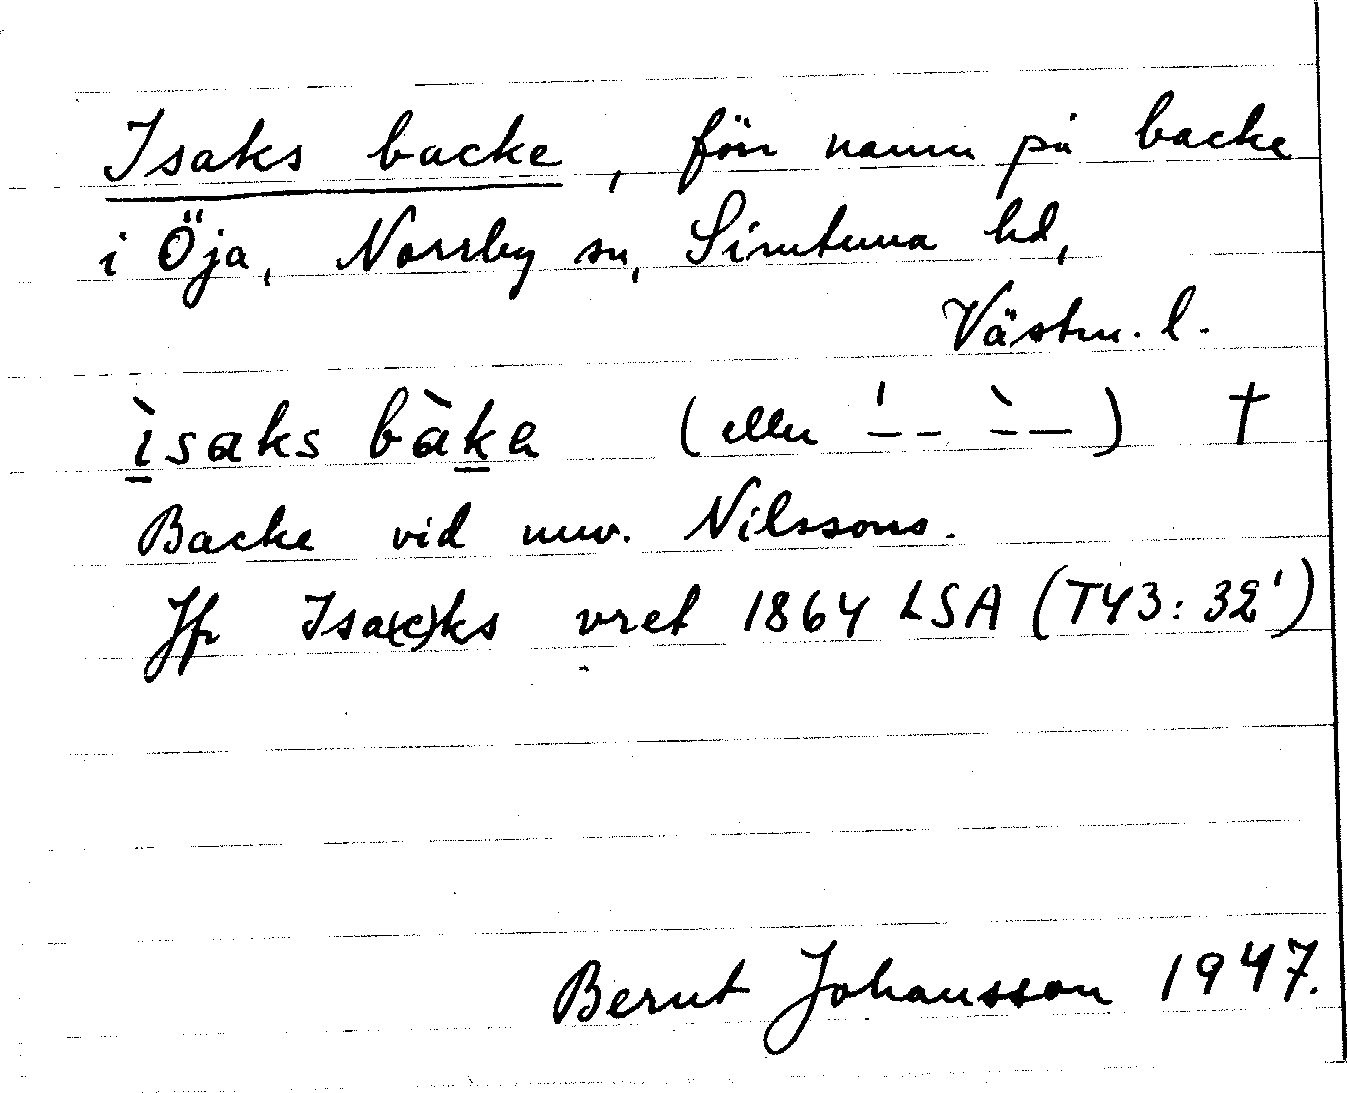 Isaks backe, förr namn på backe
i Öja, Norrby sn, Simtuna hd,
Västm. l.
ìsaks bàka (eller '-- `--) †
Backe vid nuv. Nilssons.
Jfr Isa(c)ks vret 1864 LSA (T43:32¹)
Bernt Johansson 1947.